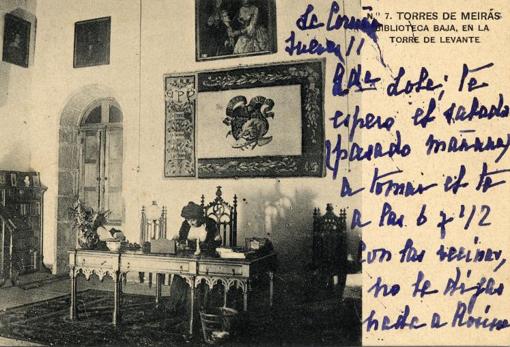 Nº 7. TORRES DE MEIRÁS
BIBLIOTECA BAJA, EN LA
TORRE DE LEVANTE
La Coruña
Jueves 11
Lola; te
espero el sabado
(pasado mañana)
a tomar el te
a las 6 y 1/2
con las vecinas,
no le digas
nada a